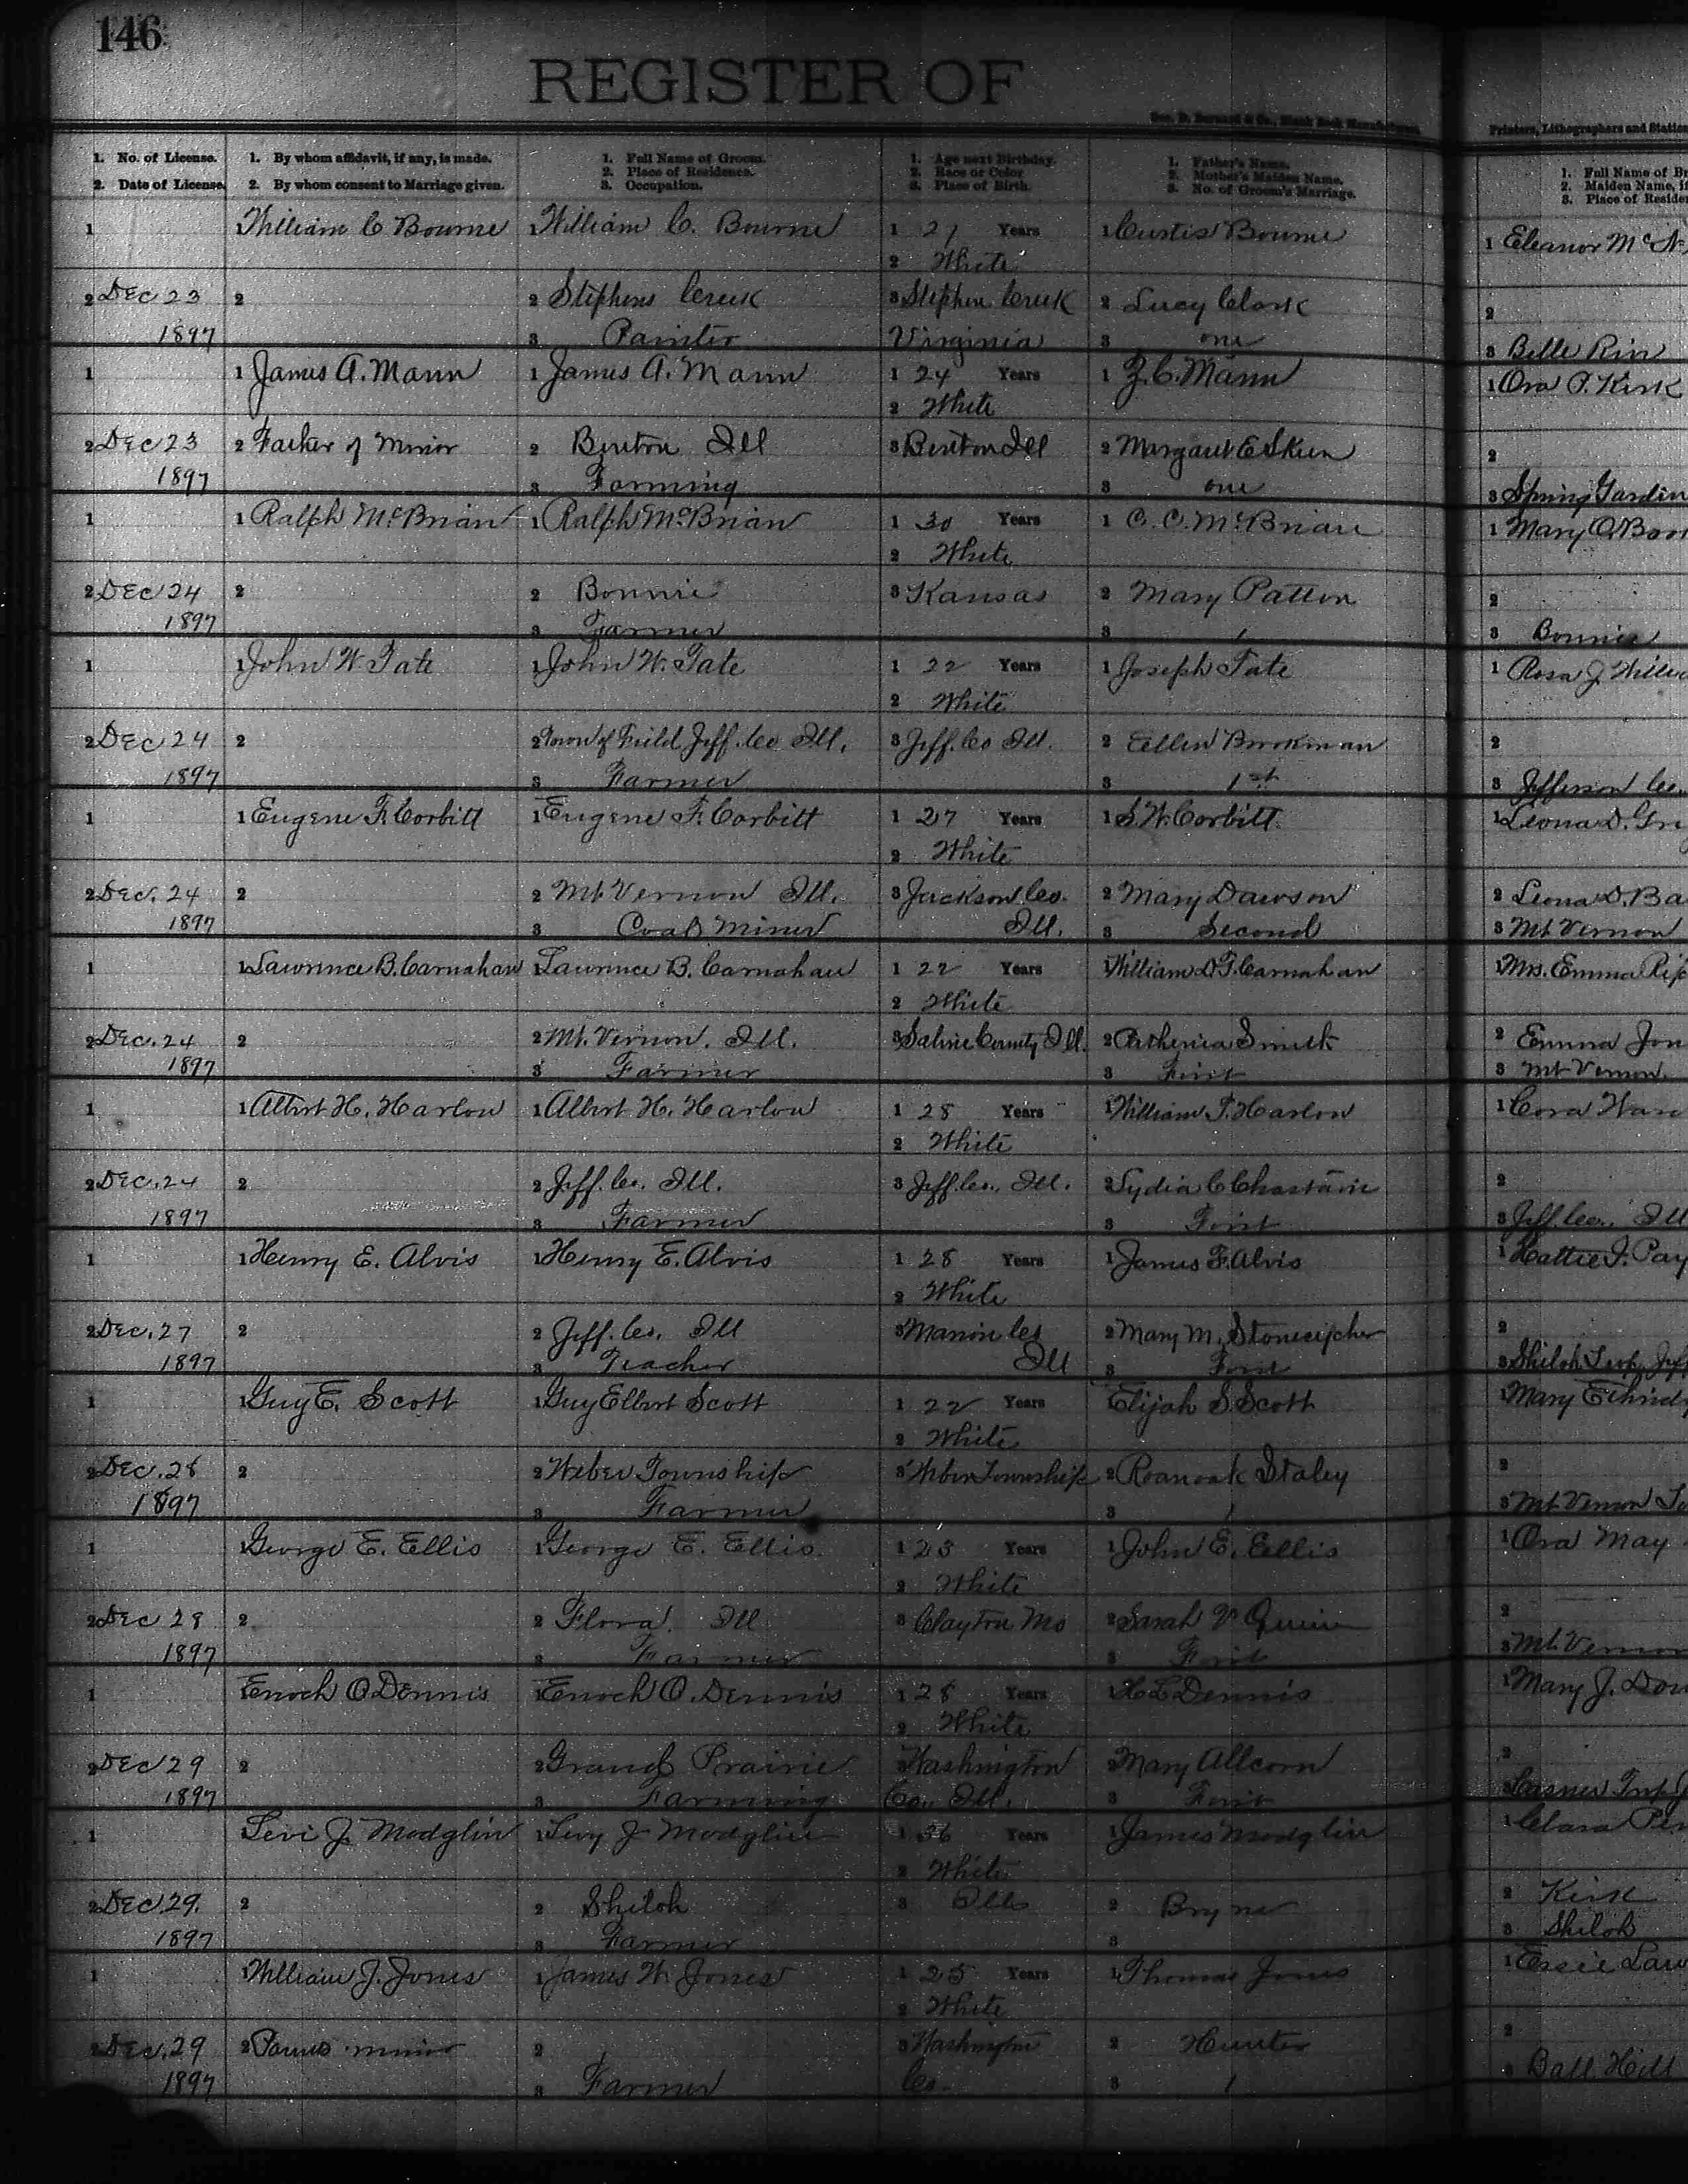 146
REGISTER OF
Geo. D. Barnard & Co., Blank Book Manufacturers,
Printers, Lithographers and Station
1. No. of License.
2. Date of License.
1. By whom affidavit, if any, is made.
2. By whom consent to Marriage given.
1. Full Name of Groom.
2. Place of Residence.
3. Occupation.
1. Age next Birthday.
2. Race or Color
3. Place of Birth.
1. Father's Name.
2. Mother's Maiden Name.
3. No. of Groom's Marriage.
1. Full Name of Br
2. Maiden Name, if
3. Place of Reside
1 William C Bourne 1 William C. Bourne 1 21 Years 1 Curtis Bourne 1 Eleanor Mc
2 White
2 Dec 23 2 2 Stephens Creek 3 Stephen Creek 2 Lucy Clark 2
1897 3 Painter Virginia 3 one 3 Belle Riv
1 1 James A. Mann 1 James A. Mann 1 24 Years 1 Z. C. Mann 1 Ora P. Kirk
2 White
2 Dec 23 2 Father of Minor 2 Benton Ill 3 Benton Ill 2 Margaret E Skeen 2
1897 3 Farming 3 one 3 Spring Garden
1 1 Ralph McBrian 1 Ralph McBrian 1 30 Years 1 C. C. McBrian 1 Mary O. Boo
2 White
2 Dec 24 2 2 Bonnie 3 Kansas 2 Mary Patton 2
1897 3 Farmer 3 1 3 Bonnie
1 1 John W. Tate 1 John W. Tate 1 22 Years 1 Joseph Tate 1 Rosa J. Willia
2 White
2 Dec 24 2 2 Town of Field Jeff. Co Ill. 3 Jeff. Co Ill. 2 Ellen Brookman 2
1897 3 Farmer 3 1st 3 Jefferson Co.
1 1 Eugene F. Corbitt 1 Eugene F. Corbitt 1 27 Years 1 S. W. Corbitt 1 Leona D. Gre
2 White
2 Dec. 24 2 2 Mt Vernon Ill. 3 Jackson Co. 2 Mary Dawson 2 Leona D. Ba
1897 3 Coal Miner Ill. 3 Second 3 Mt Vernon
1 1 Lawrence B. Carnahan 1 Lawrence B. Carnahan 1 22 Years 1 William D. F. Carnahan 1 Mrs. Emma Rip
2 White
2 Dec. 24 2 2 Mt. Vernon, Ill. 3 Saline County Ill. 2 Parthenia Smith 2 Emma Jon
1897 3 Farmer 3 First 3 Mt Vernon.
1 1 Albert H. Harlow 1 Albert H. Harlow 1 28 Years 1 William T. Harlow 1 Cora Ware
2 White
2 Dec. 24 2 2 Jeff. Co. Ill. 3 Jeff. Co., Ill. 2 Lydia C Chastain 2
1897 3 Farmer 3 First 3 Jeff. Co., Ill
1 1 Henry E. Alvis 1 Henry E. Alvis 1 28 Years 1 James F. Alvis 1 Hattie I. Pay
2 White
2 Dec. 27 2 2 Jeff. Co. Ill 3 Marion Co 2 Mary M. Stonecipher 2
1897 3 Teacher Ill 3 First 3 Shiloh Twp, Jeff
1 1 Guy E. Scott 1 Guy Elbert Scott 1 22 Years Elijah S. Scott 1 Mary Ethindy
2 White
2 Dec. 28 2 2 Weber Township 3 Weber Township 2 Roanoak Staley 2
1897 3 Farmer 3 1 3 Mt. Vernon To
1 George E. Ellis 1 George E. Ellis 1 23 Years 1 John E. Ellis 1 Ora May
2 White
2 Dec 28 2 2 Flora Ill 3 Clayton Mo 2 Sarah V Quinn 2
1897 3 Farmer 3 First 3 Mt. Vernon
1 Enoch O Dennis Enoch O. Dennis 1 28 Years 1 H L Dennis 1 Mary J. Dow
2 White
2 Dec 29 2 2 Grand Prairie 3 Washington 2 Mary Allcorn 2
1897 3 Farming Co., Ill. 3 First 3 Casner Twp J
1 Levi J. Modglin 1 Levy J Modglin 1 36 Years 1 James Modglin 1 Clara Per
2 White
2 Dec. 29. 2 2 Shiloh 3 Ills 2 Bryne 2 Kirk
1897 3 Farmer 3 3 Shiloh
1 1 William J. Jones 1 James W. Jones 1 25 Years 1 Thomas Jones 1 Essie Law
2 White
2 Dec. 29 2 minor 2 3 Washington 2 Hunter 2
1897 3 Farmer Co. 3 1 3 Ball Hill